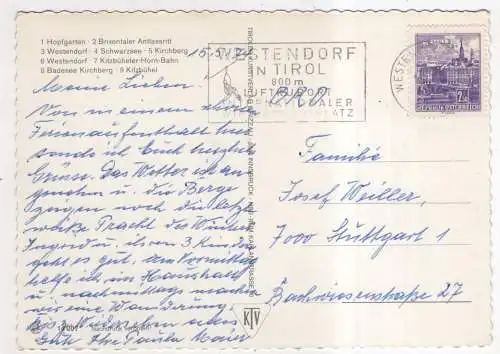 1 Hopfgarten · 2 Brixentaler Antlassritt
3 Westendorf · 4 Schwarzsee · 5 Kirchberg
6 Westendorf 7 Kitzbüheler-Horn-Bahn
8 Badesee Kirchberg · 9 Kitzbühel
15.5.72
WESTENDORF
IN TIROL
800 m
LUFTKURORT
REPUBLIK ÖSTERREICH
Meine Lieben.
Von meinem
Ferienaufenthalt
sende ich Euch herzliche
Grüsse. Das Wetter ist an-
genehm u. die Berge
zeigen noch die letzte
weiße Pracht des Winters
Ingrid u. ihren 3 Kindern
geht es gut, am Vormittag
helfe ich im Haushalt
u. nachmittags machen
wir eine Wanderung
Es wünschen alles
Gute Ihre Paula Maier
Familie
Josef Weiller,
7000 Stuttgart 1
Bachwiesenstraße 27
KTV